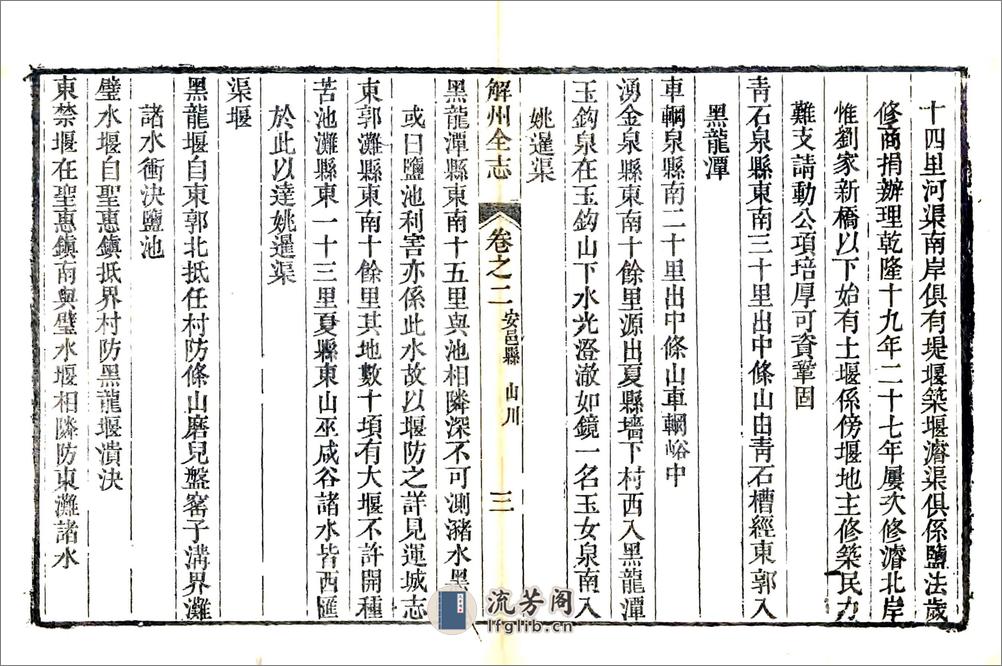 十四里河渠南岸俱有堤堰築堰濬渠俱係鹽法歲
修商捐辦理乾隆十九年二十七年屢次修濬北岸
惟劉家新橋以下始有土堰係傍堰地主修築民力
難支請動公項培厚可資鞏固
青石泉縣東南三十里出中條山由青石槽經東郭入
黑龍潭
車輞泉縣南二十里出中條山車輞峪中
湧金泉縣東南十餘里源出夏縣墻下村西入黑龍潭
玉鈎泉在玉鈎山下水光澄澈如鏡一名玉女泉南入
姚暹渠
解州全志
卷之二
安邑縣 山川
三
黑龍潭縣東南十五里與池相隣深不可測瀦水黑
或曰鹽池利害亦係此水故以堰防之詳見運城志
東郭灘縣東南十餘里其地數十項有大堰不許開種
苦池灘縣東一十三里夏縣東山巫咸谷諸水皆西匯
於此以達姚暹渠
渠堰
黑龍堰自東郭北抵任村防條山磨兒盤窰子溝界灘
諸水衝決鹽池
璧水堰自聖惠鎮抵界村防黑龍堰潰決
東禁堰在聖惠鎮南與璧水堰相隣防東灘諸水
流芳阁
lfglib.cn